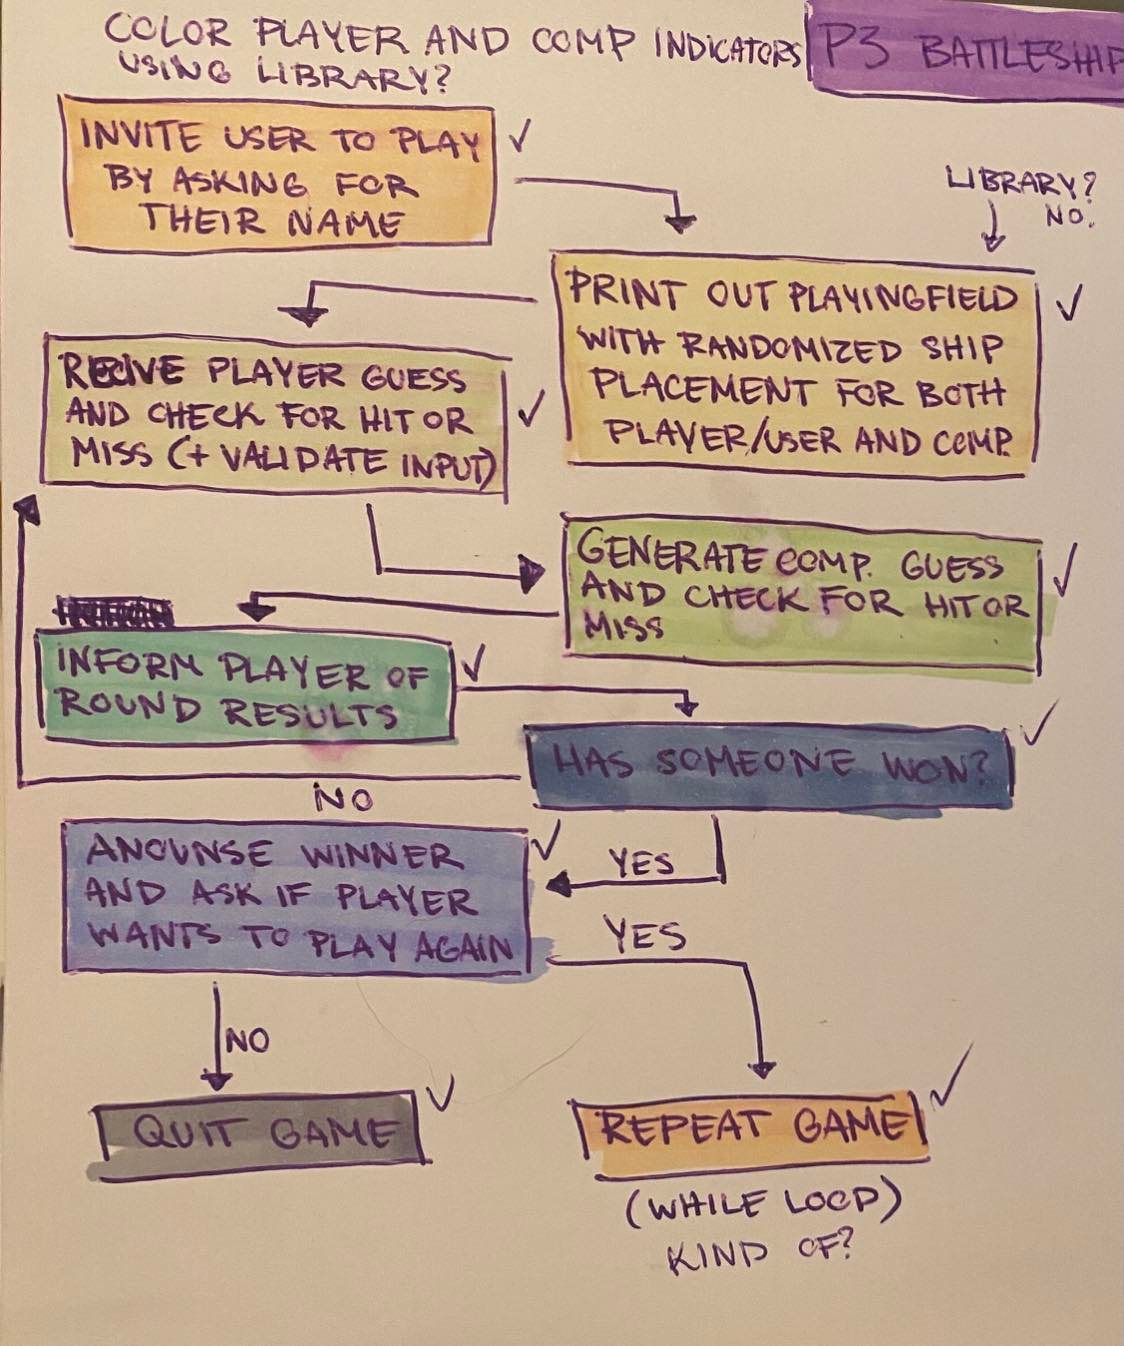 COLOR PLAYER AND COMP INDICATORS
USING LIBRARY?
P3 BATTLESHIP
INVITE USER TO PLAY
BY ASKING FOR
THEIR NAME
LIBRARY?
NO.
PRINT OUT PLAYINGFIELD
WITH RANDOMIZED SHIP
PLACEMENT FOR BOTH
PLAYER/USER AND COMP.
RECIVE PLAYER GUESS
AND CHECK FOR HIT OR
MISS (+ VALIDATE INPUT)
GENERATE COMP. GUESS
AND CHECK FOR HIT OR
MISS
INFORM PLAYER OF
ROUND RESULTS
HAS SOMEONE WON?
NO
YES
ANOUNSE WINNER
AND ASK IF PLAYER
WANTS TO PLAY AGAIN
YES
NO
QUIT GAME
REPEAT GAME
(WHILE LOOP)
KIND OF?